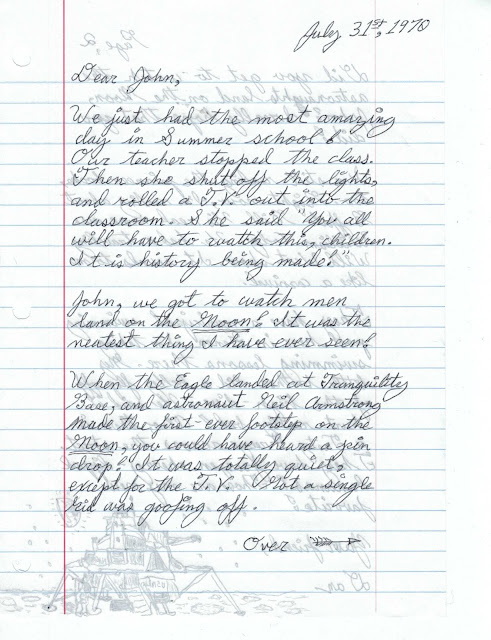 July 31st, 1970
Dear John,
We just had the most amazing
day in Summer school!
Our teacher stopped the class.
Then she shut off the lights,
and rolled a T.V. out into the
classroom. She said "You all
will have to watch this, children.
It is history being made!"
John, we got to watch men
land on the Moon! It was the
neatest thing I have ever seen!
When the Eagle landed at Tranquility
Base, and astronaut Neil Armstrong
made the first-ever footstep on the
Moon, you could have heard a pin
drop! It was totally quiet,
except for the T.V. Not a single
kid was goofing off.
Over